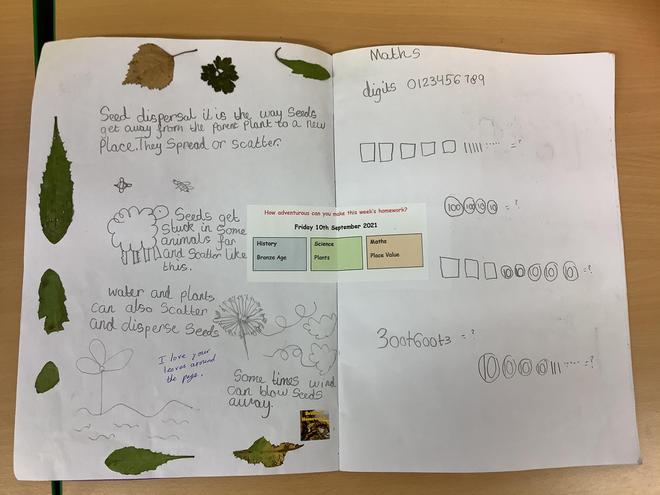 Seed dispersal it is the way Seeds
get away from the parent plant to a new
place. They Spread or scatter.
Seeds get
Stuck in Some
animals far
and Scatter like
this.
water and plants
can also Scatter
and disperse Seeds
I love your
leaves around
the page.
Some times wind
can blow Seeds
away.
How adventurous can you make this week's homework?
Friday 10th September 2021
History
Bronze Age
Science
Plants
Maths
Place Value
Maths
digits 0123456789
= ?
100 100 10 10 = ?
10 10 10 10 10 = ?
300+600+3 = ?
10 10 10 10 = ?